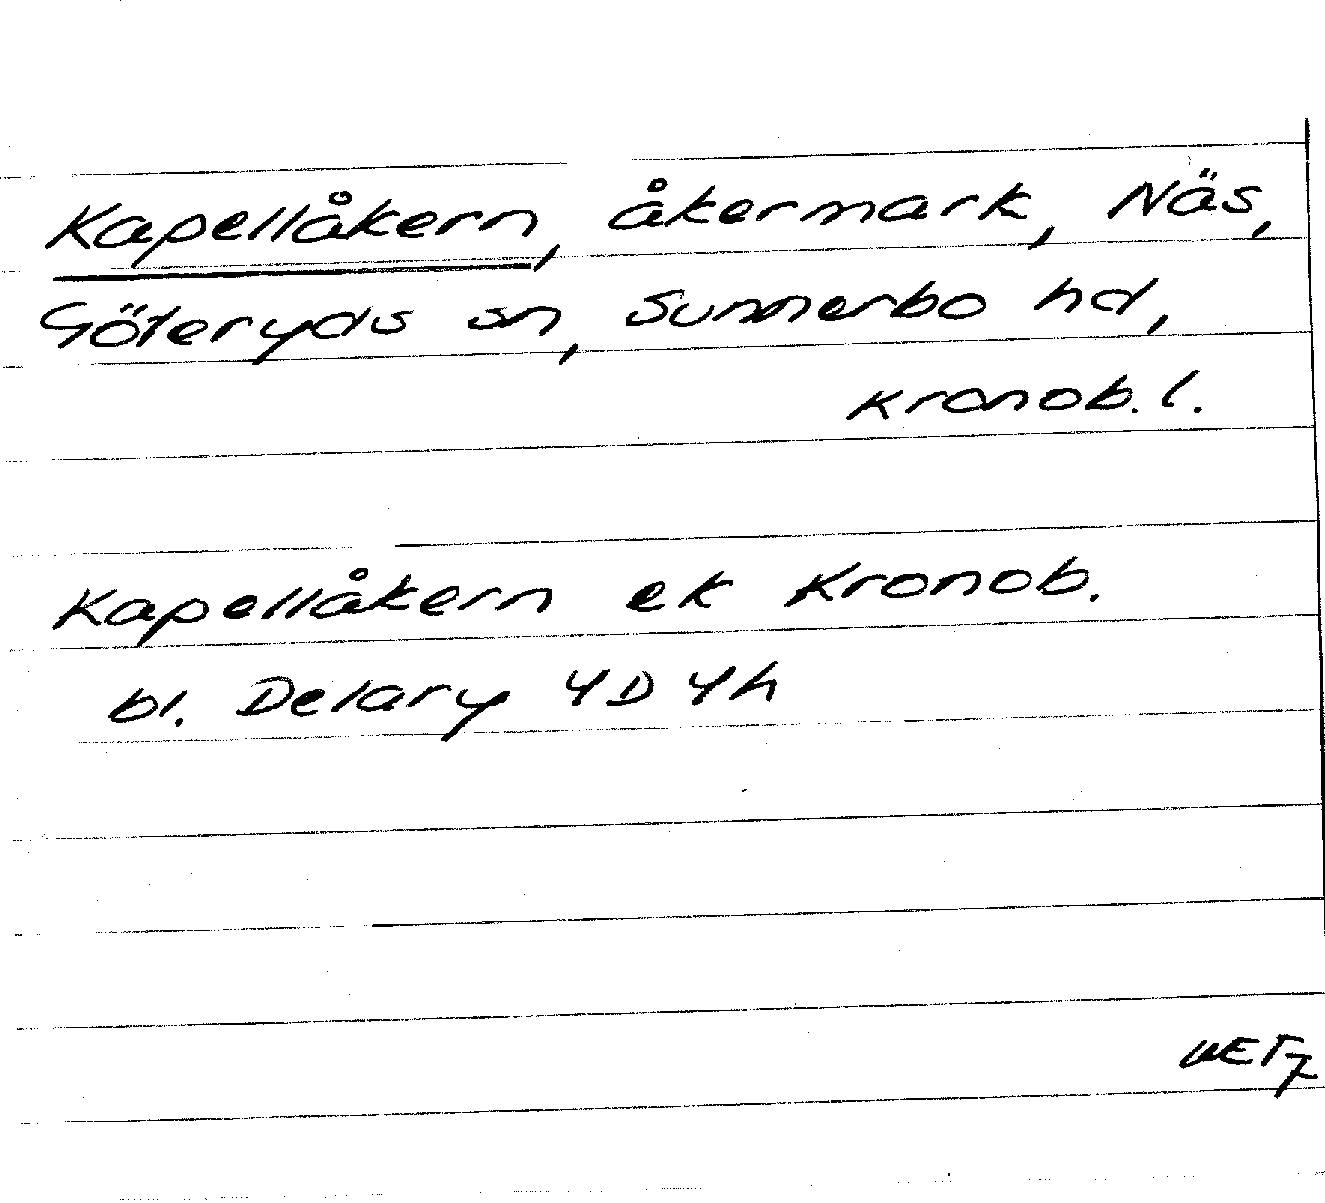 Kapellåkern, åkermark, Näs,
Göteryds sn, Sunnerbo hd,
Kronob. l.
Kapellåkern ek Kronob.
bl. Delary 4D4h